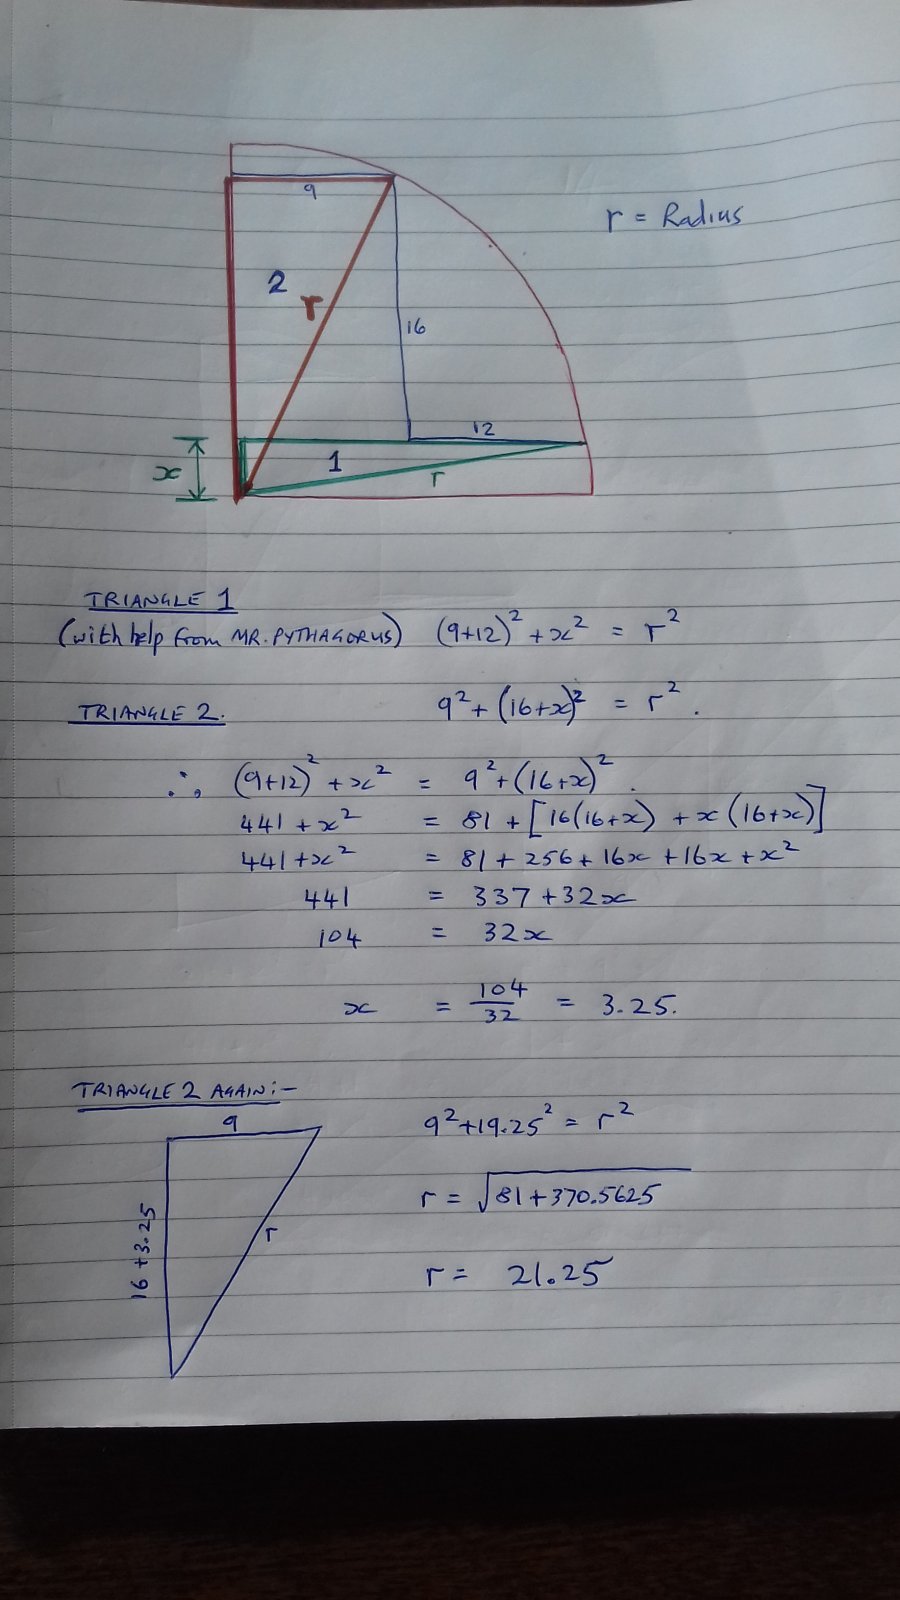 9
r = Radius
2
r
16
12
x
1
r
TRIANGLE 1
(with help from MR. PYTHAGORUS) (9+12)² + x² = r²
TRIANGLE 2. 9² + (16+x)² = r².
∴ (9+12)² + x² = 9² + (16+x)².
441 + x² = 81 + [16(16+x) + x(16+x)]
441 + x² = 81 + 256 + 16x + 16x + x²
441 = 337 + 32x
104 = 32x
x = 104/32 = 3.25.
TRIANGLE 2 AGAIN:-
9
9² + 19.25² = r²
16 + 3.25
r = √81 + 370.5625
r
r = 21.25